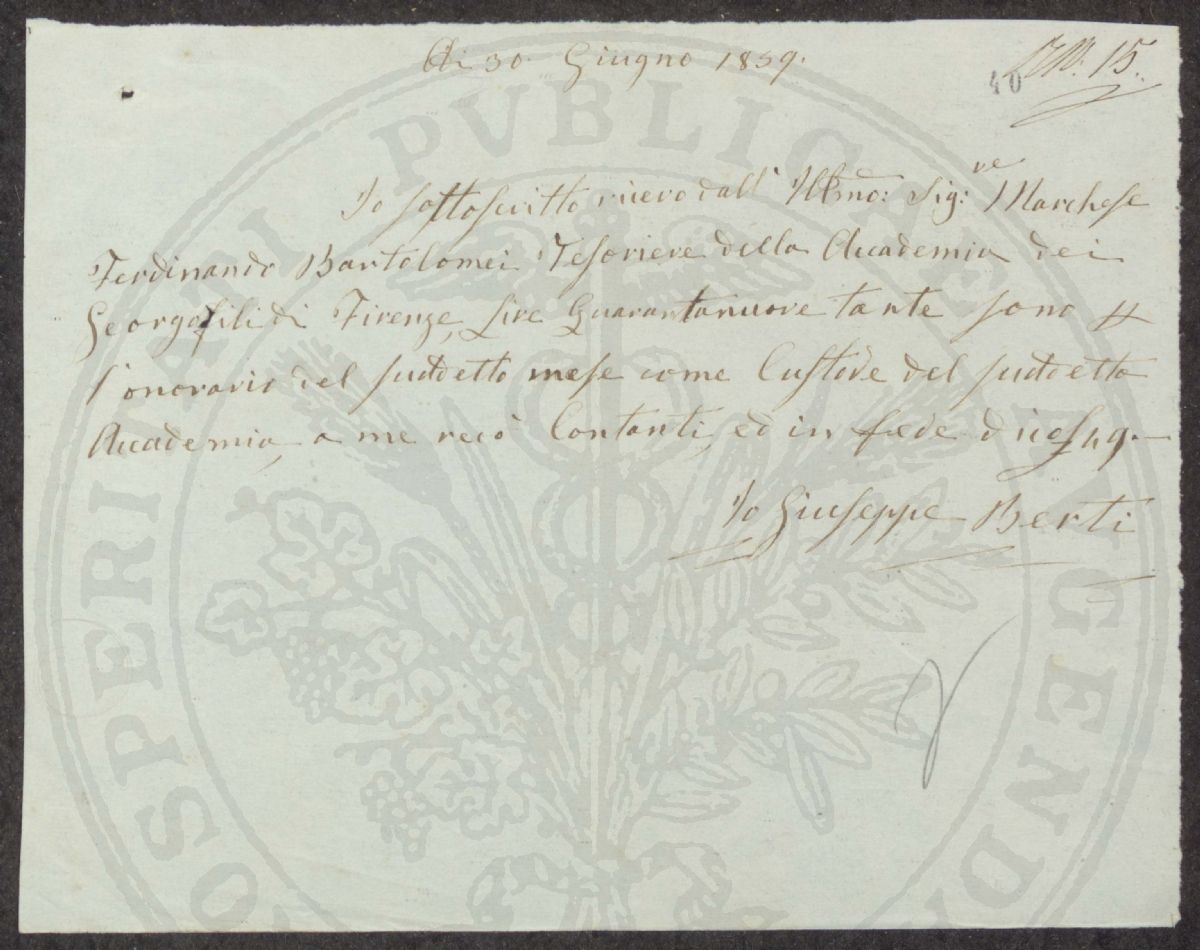 Di 30. Giugno 1859.
N. 15.
40
Io sottoscritto ricevo dall' Illmo: Sig:re Marchese
Ferdinando Bartolomei Tesoriere della Accademia dei
Georgofili di Firenze, Lire Quarantanuove tante sono p
l'onorario del suddetto mese come Custode del suddetto
Accademia, a me recò Contanti, ed in fede
Io Giuseppe Berti
PROSPERITATI PVBLICAE AVGENDAE